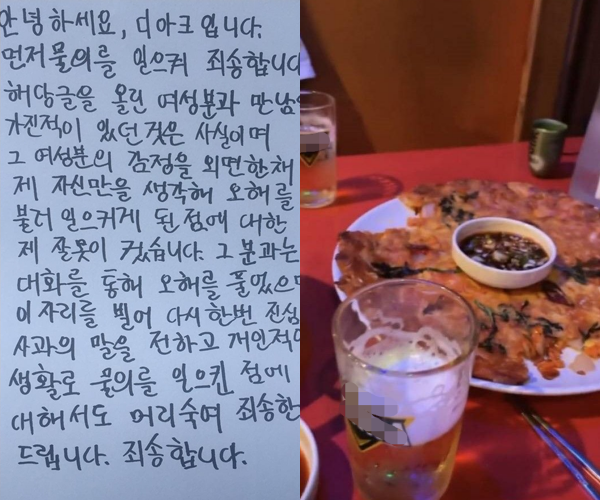 안녕하세요, 디아크입니다.
먼저 물의를 일으켜 죄송합니다
해당글을 올린 여성분과 만남을
가진적이 있던것은 사실이며
그 여성분의 감정을 외면한채
제 자신만을 생각해 오해를
불러 일으키게 된점에 대한
제 잘못이 컸습니다. 그분과는
대화를 통해 오해를 풀었으며
이 자리를 빌어 다시한번 진심
사과의 말을 전하고 개인적
생활로 물의를 일으킨 점에
대해서도 머리숙여 죄송한
드립니다. 죄송합니다.